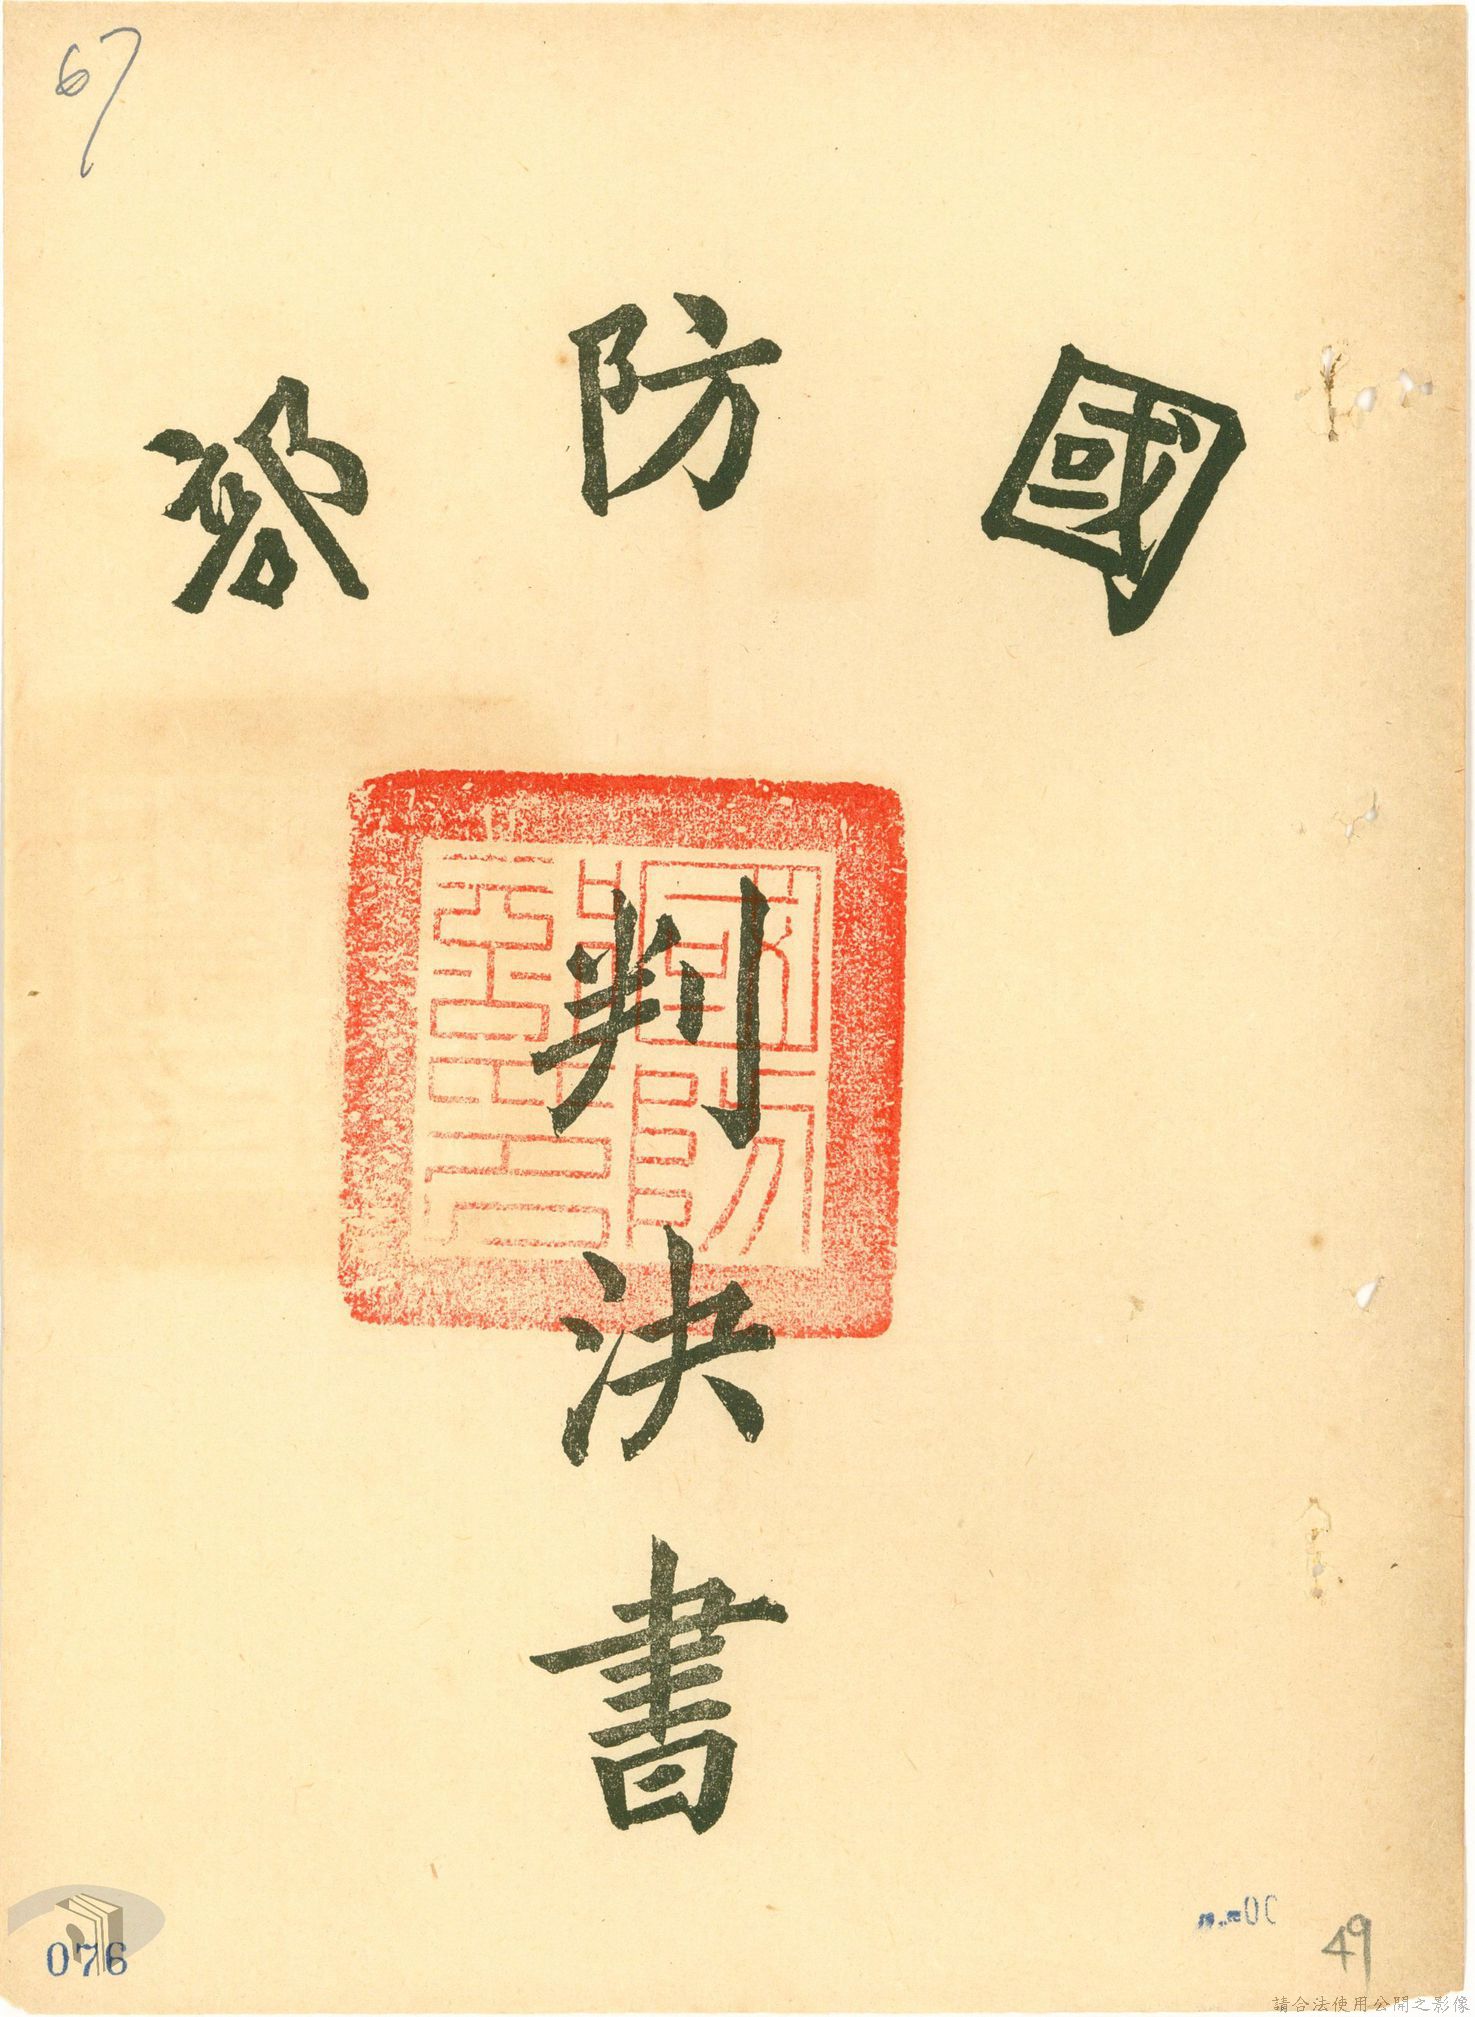 67
國防部
判決書
國防部印
076
49
請合法使用公開之影像